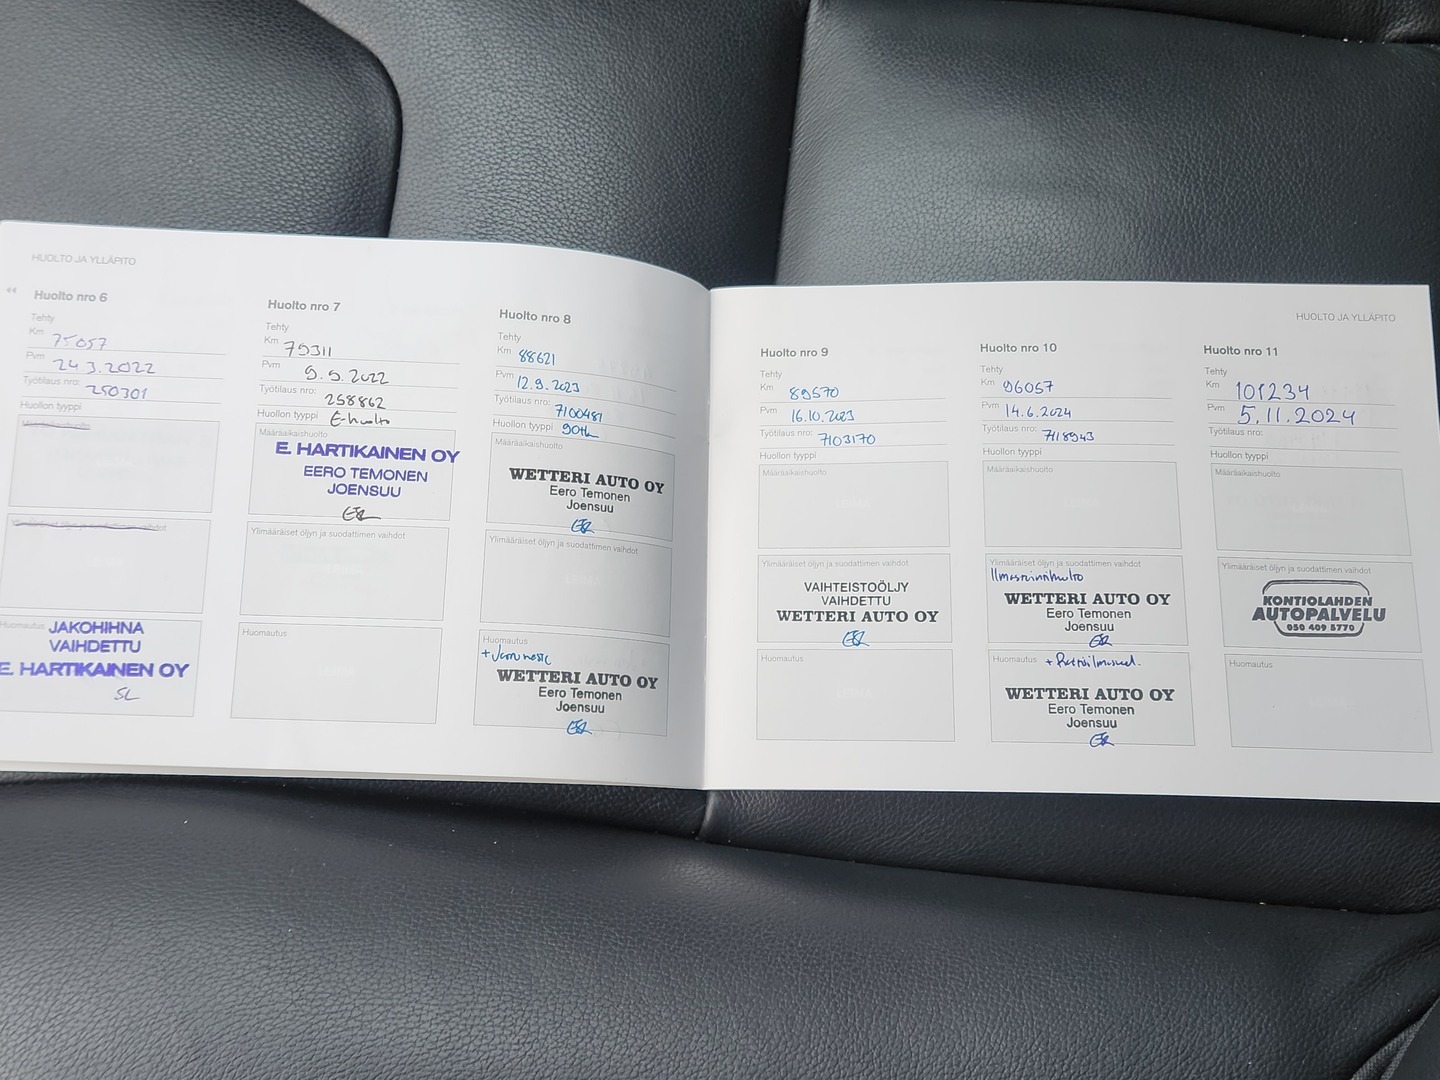 HUOLTO JA YLLÄPITO
Huolto nro 6
Tehty
Km 75057
Pvm 24.3.2022
Työtilaus nro: 250301
Huollon tyyppi
Määräaikaishuolto
Ylimääräiset öljyn ja suodattimen vaihdot
Huomautus JAKOHIHNA
VAIHDETTU
E. HARTIKAINEN OY
SL
Huolto nro 7
Tehty
Km 79311
Pvm 9.9.2022
Työtilaus nro: 258862
Huollon tyyppi E-huolto
Määräaikaishuolto
E. HARTIKAINEN OY
EERO TEMONEN
JOENSUU
Ylimääräiset öljyn ja suodattimen vaihdot
Huomautus
Huolto nro 8
Tehty
Km 88621
Pvm 12.9.2023
Työtilaus nro: 7100481
Huollon tyyppi 90tk
Määräaikaishuolto
WETTERI AUTO OY
Eero Temonen
Joensuu
Ylimääräiset öljyn ja suodattimen vaihdot
Huomautus
+ Jarruneste
WETTERI AUTO OY
Eero Temonen
Joensuu
HUOLTO JA YLLÄPITO
Huolto nro 9
Tehty
Km 89570
Pvm 16.10.2023
Työtilaus nro: 7103170
Huollon tyyppi
Määräaikaishuolto
Ylimääräiset öljyn ja suodattimen vaihdot
VAIHTEISTOÖLJY
VAIHDETTU
WETTERI AUTO OY
Huomautus
Huolto nro 10
Tehty
Km 96057
Pvm 14.6.2024
Työtilaus nro: 7118943
Huollon tyyppi
Määräaikaishuolto
Ylimääräiset öljyn ja suodattimen vaihdot
Ilmastoinnihuolto
WETTERI AUTO OY
Eero Temonen
Joensuu
Huomautus
WETTERI AUTO OY
Eero Temonen
Joensuu
Huolto nro 11
Tehty
Km 101234
Pvm 5.11.2024
Työtilaus nro:
Huollon tyyppi
Määräaikaishuolto
Ylimääräiset öljyn ja suodattimen vaihdot
KONTIOLAHDEN
AUTOPALVELU
050 409 5770
Huomautus